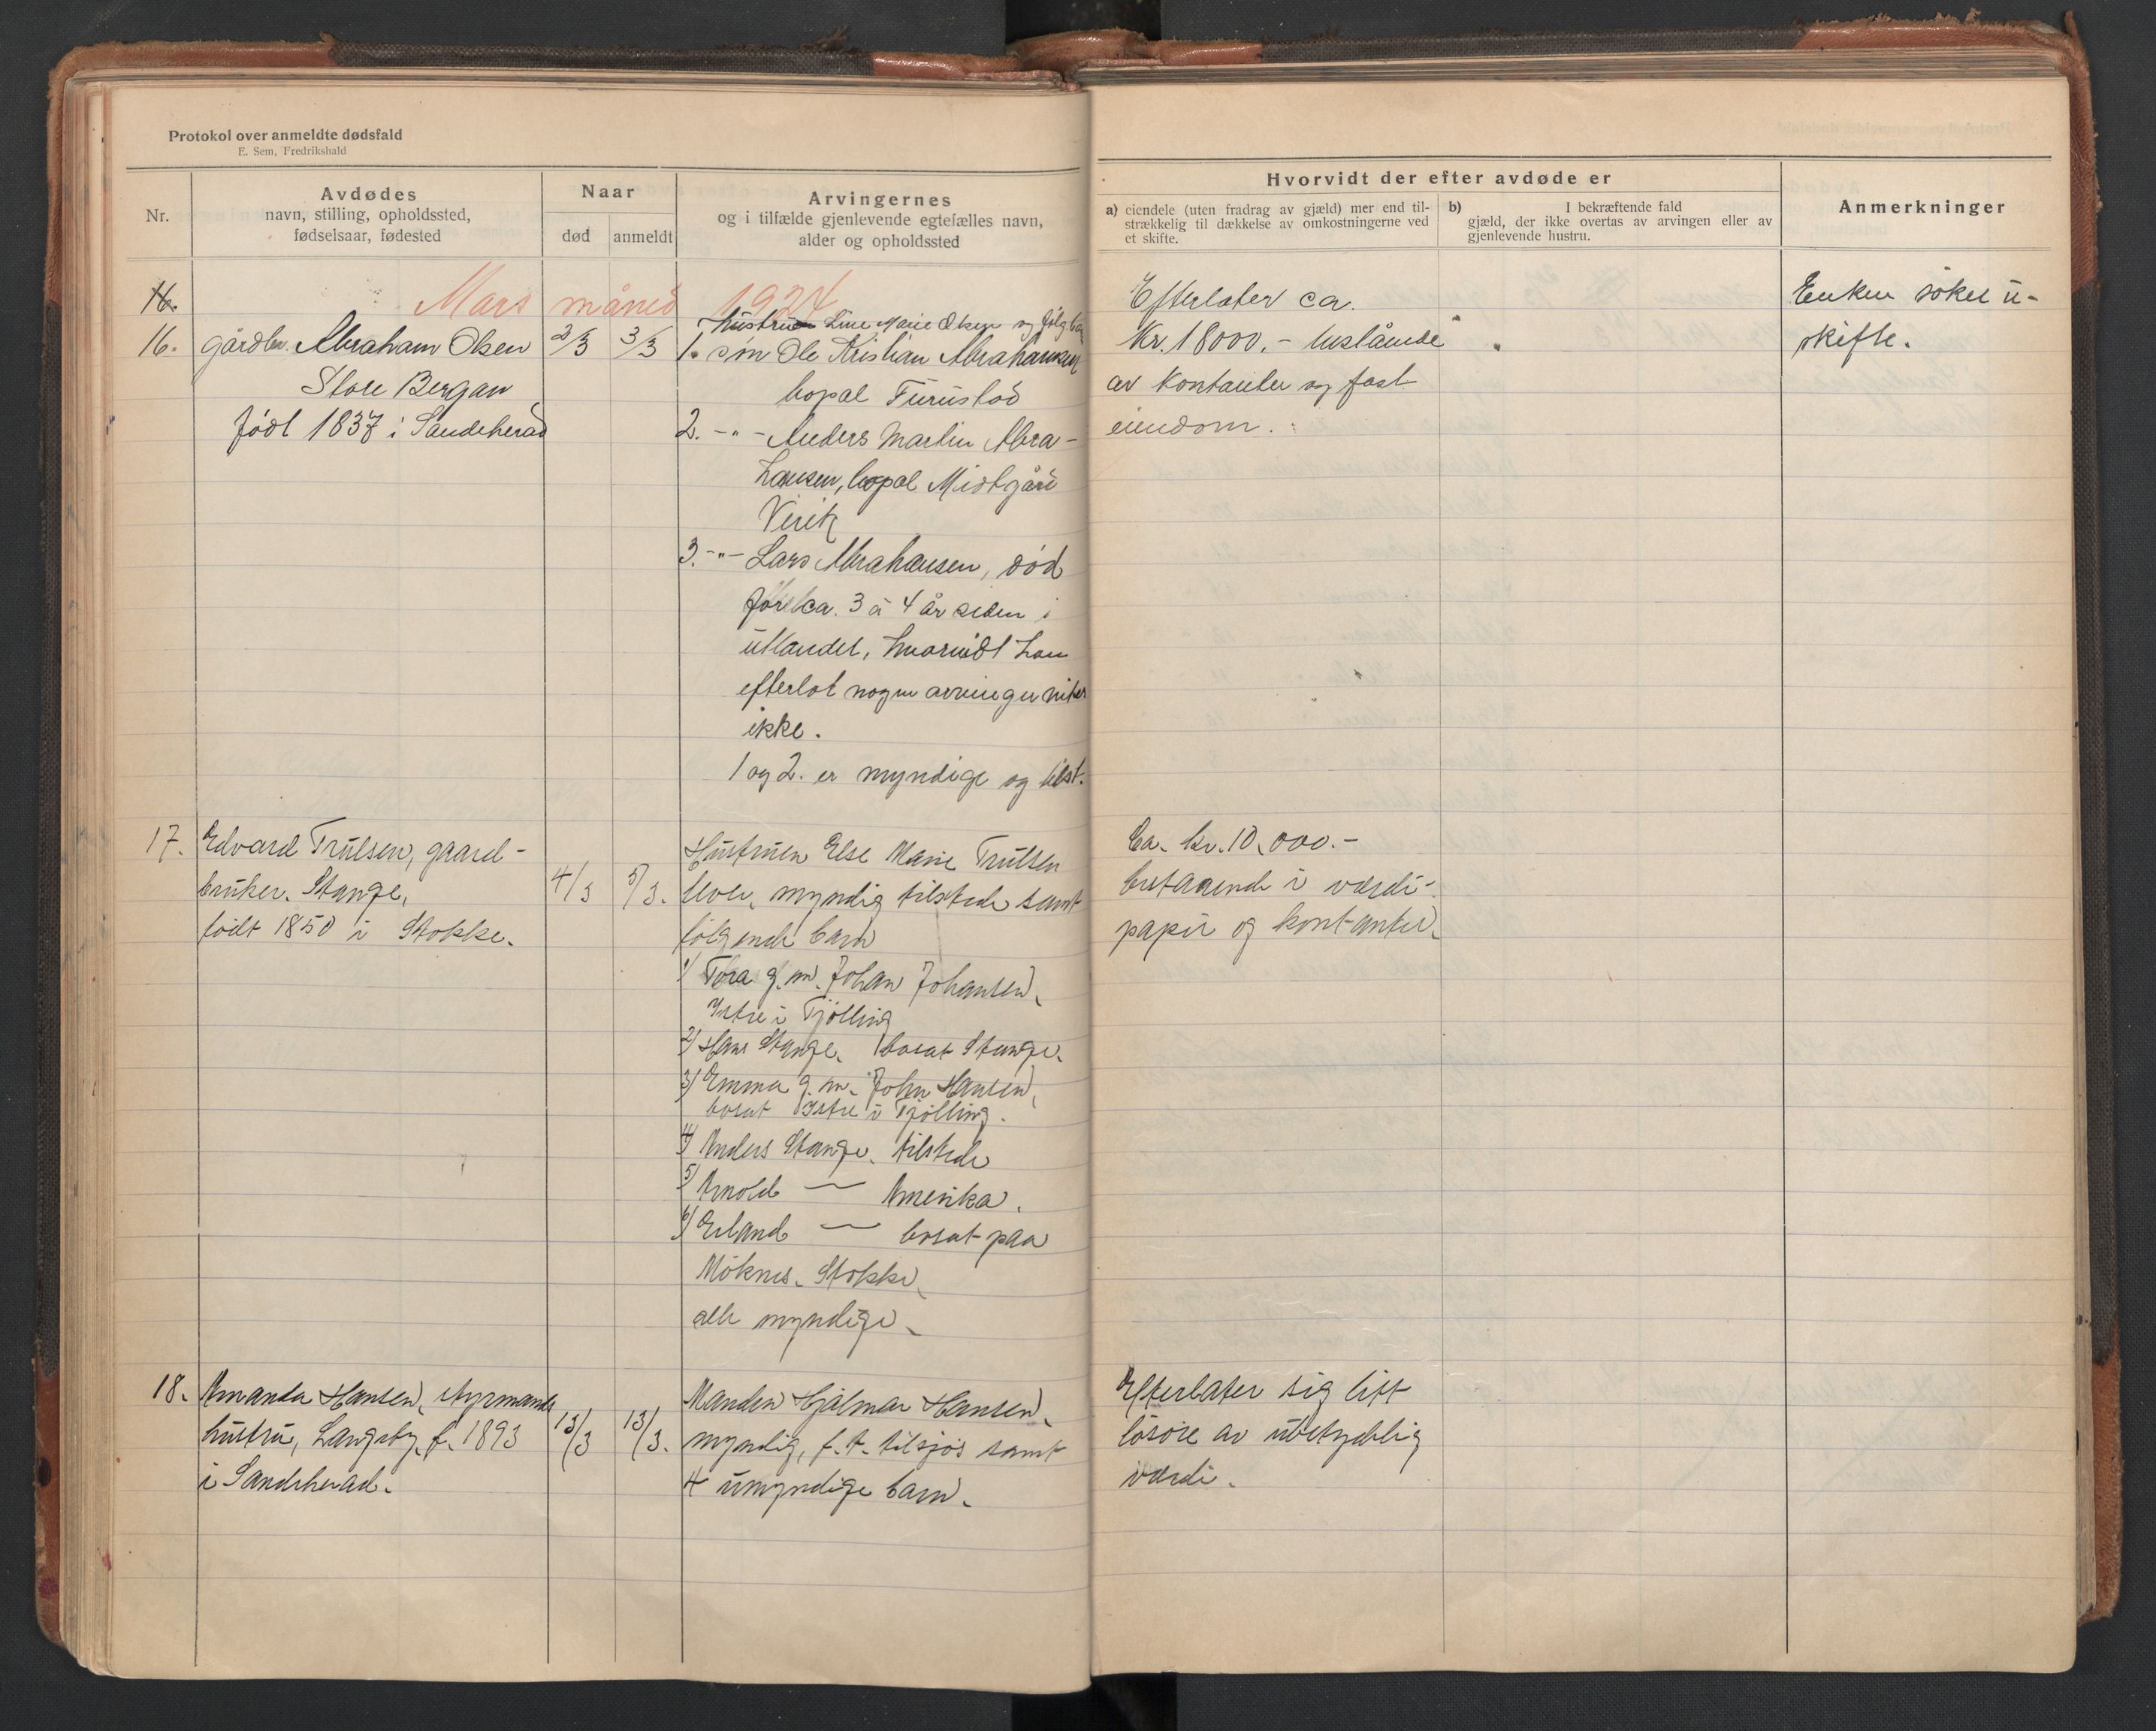 Protokol over anmeldte dødsfald
E. Sem, Fredrikshald
Nr.
Avdødes
navn, stilling, opholdssted,
fødselsaar, fødested
Naar
død
anmeldt
Arvingernes
og i tilfælde gjenlevende egtefælles navn,
alder og opholdssted
Hvorvidt der efter avdøde er
a) eiendele (uten fradrag av gjæld) mer end til-
strækkelig til dækkelse av omkostningerne ved
et skifte.
b) I bekræftende fald
gjæld, der ikke overtas av arvingen eller av
gjenlevende hustru.
Anmerkninger
16.
Mars måned 1924
16. gårdbr. Abraham Olsen
Store Bergan
født 1837 i Sandeherad
2/3
3/3
hustruen Line Marie Olsen og følg. barn
1. søn Ole Kristian Abrahamsen
bopæl Furustad
2. -"- Anders Martin Abra-
hansen, bopæl Midtgård
Virik
3. -"- Lars Abrahansen, død
for ca. 3 à 4 år siden i
utlandet, hvorvidt han
efterlot nogen arvinger vites
ikke.
1 og 2. er myndige og tilst.
Efterlater ca.
Kr. 18000.- bestående
av kontanter og fast
eiendom.
Enken søker u-
skifte.
17. Edvard Trulsen, gaard-
bruker. Stange,
født 1850 i Stokke.
4/3
5/3.
Hustruen Else Marie Trulsen
myndig tilstede samt
følgende barn
1/ Tora g. m. Johan Johansen,
Istre i Tjölling
2/ Hans Stange, bosat Stange.
3/ Emma g. m. John Hansen,
bosat Istre i Tjölling.
4/ Anders Stange, tilstede
5/ Arnold — Amerika.
6/ Erland — bosat paa
Möknes. Stokke,
alle myndige.
Ca. kr. 10.000.-
bestaaende i værdi-
papir og kontanter.
18. Amanda Hansen, styrmands
hustru, Langeby, f. 1893
i Sandeherad.
13/3
13/3.
Manden Hjalmar Hansen,
myndig, f. t. tilsjös samt
4 umyndige barn.
Efterlater sig litt
lösöre av ubetydelig
værdi.